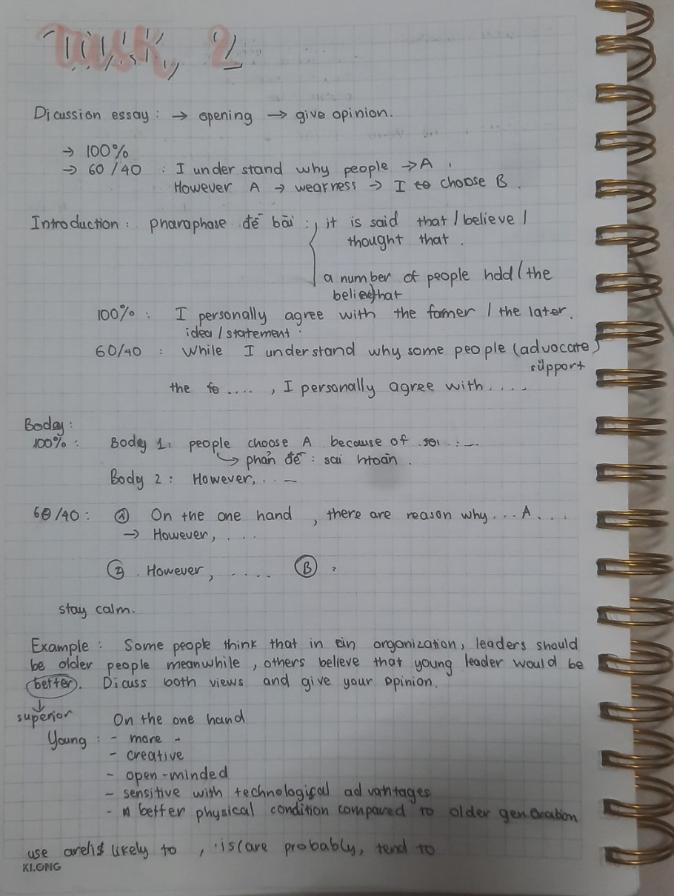 Task 2
Dicussion essay : → opening → give opinion.
→ 100%
→ 60/40 : I understand why people → A .
However A → wearness → I to choose B .
Introduction : pharaphase đề bài : it is said that / believe /
thought that .
a number of people hold / the
belief that
100% : I personally agree with the famer / the later.
idea / statement :
60/40 : While I understand why some people (advocate)
support
the fo .... , I personally agree with ....
Boday :
100% : Body 1 : people choose A because of ... : ...
↳ phản đề : sai htoàn .
Body 2 : However, . . —
60/40 : Ⓐ On the one hand , there are reason why ... A ....
→ However, ....
② However , .... Ⓑ .
stay calm.
Example : Some people think that in an organization, leaders should
be older people meanwhile , others believe that young leader would be
better. Dicuss both views and give your opinion.
↓
superior On the one hand
Young : - more -
- creative
- open-minded
- sensitive with technological advantages
- better physical condition compared to older generation
use are/is likely to , is/are probably, tend to
KLONG